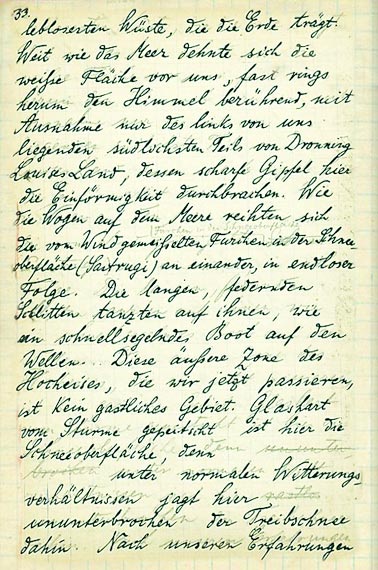 33.
leblosesten Wüste, die die Erde trägt.
Weit wie das Meer dehnte sich die
weiße Fläche vor uns, fast rings
herum den Himmel berührend, mit
Ausnahme nur des links von uns
liegenden südlichsten Teils von Dronning
Louises Land, dessen scharfe Gipfel hier
die Einförmigkeit durchbrachen. Wie
die Wogen auf dem Meere reihten sich
die vom Wind gemeißelten Furchen in der Schnee
oberfläche (Sastrugi) an einander, in endloser
Folge. Die langen, federnden
Schlitten tanzten auf ihnen, wie
ein schnellsegelndes Boot auf den
Wellen... Diese äußere Zone des
Hocheises, die wir jetzt passieren,
ist kein gastliches Gebiet. Glashart
vom Sturme gepeitscht ist hier die
Schneeoberfläche, denn
unter normalen Witterungs-
verhältnissen jagt hier
ununterbrochen der Treibschnee
dahin. Nach unseren Erfahrungen